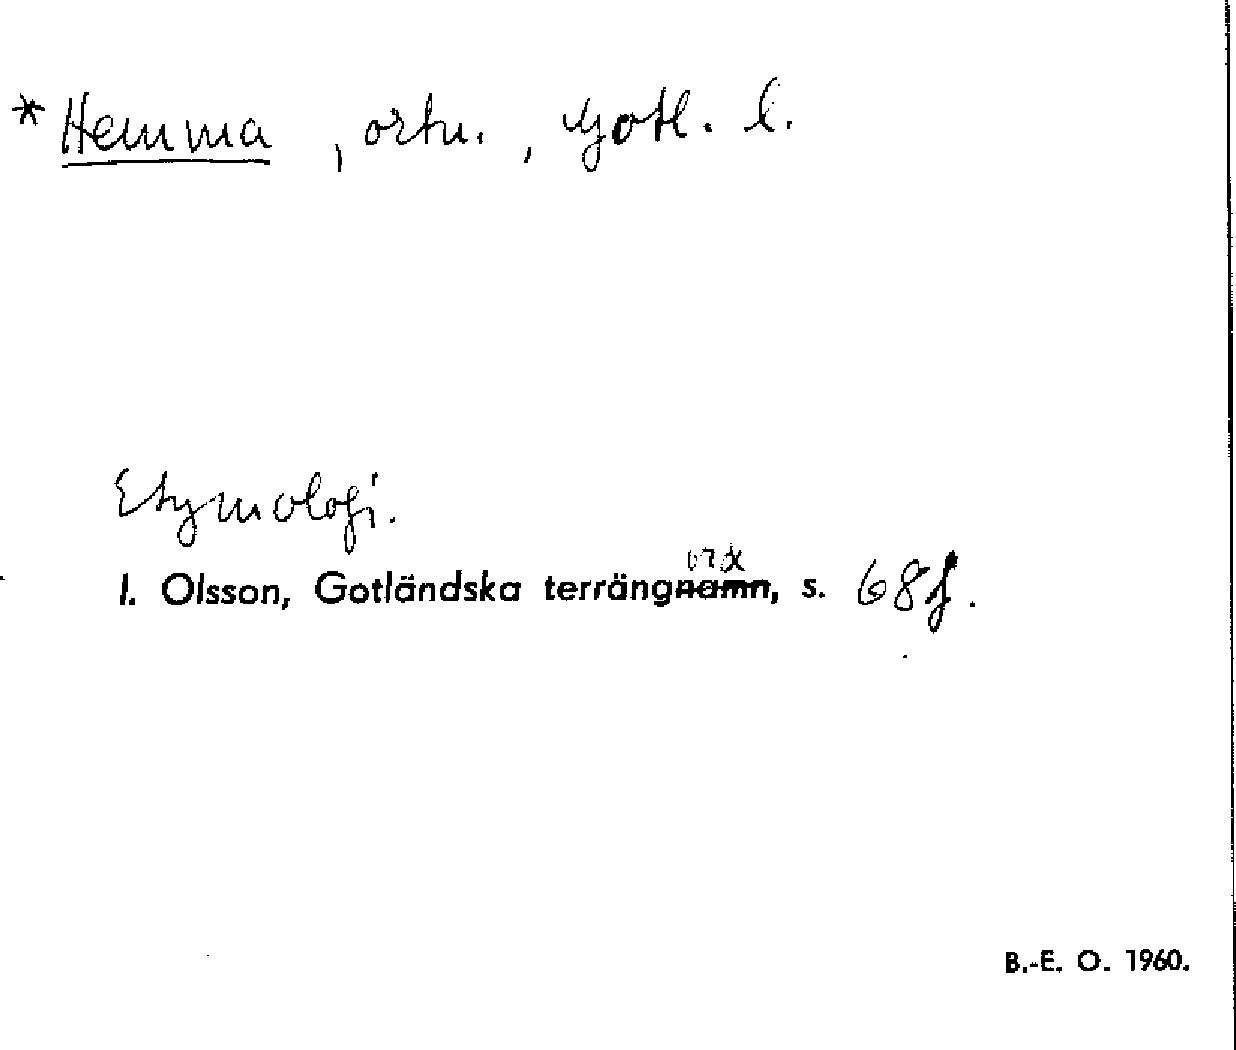 *Hemma, ortn., Gotl. l.
Etymologi.
I. Olsson, Gotländska terrängord, s. 68f.
B.-E. O. 1960.